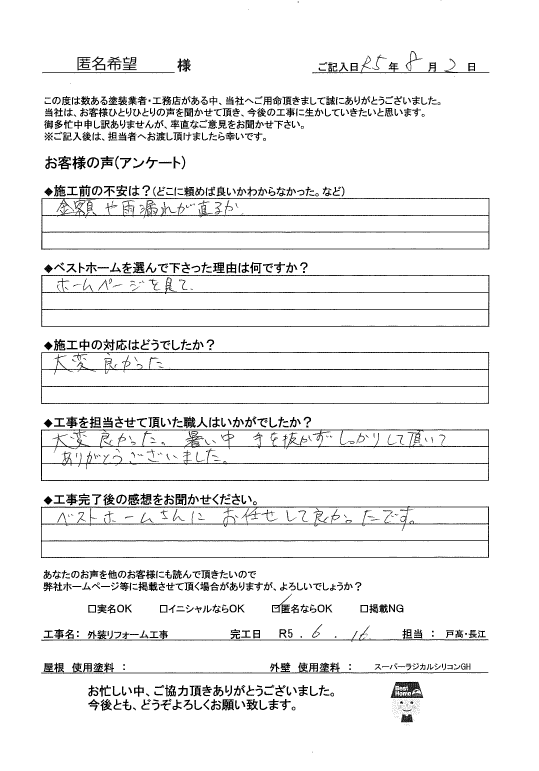 匿名希望 様
ご記入日 R5 年 8 月 2 日
この度は数ある塗装業者・工務店がある中、当社へご用命頂きまして誠にありがとうございました。
当社は、お客様ひとりひとりの声を聞かせて頂き、今後の工事に生かしていきたいと思います。
御多忙中申し訳ありませんが、率直なご意見をお聞かせ下さい。
※ご記入後は、担当者へお渡し頂けましたら幸いです。
お客様の声(アンケート)
◆施工前の不安は？(どこに頼めば良いかわからなかった。など)
金額や雨漏れが直るか
◆ベストホームを選んで下さった理由は何ですか？
ホームページを見て、
◆施工中の対応はどうでしたか？
大変良かった
◆工事を担当させて頂いた職人はいかがでしたか？
大変良かった。暑い中 手を抜かずしっかりして頂いて
ありがとうございました。
◆工事完了後の感想をお聞かせください。
ベストホームさんに お任せして良かったです。
あなたのお声を他のお客様にも読んで頂きたいので
弊社ホームページ等に掲載させて頂く場合がありますが、よろしいでしょうか？
□実名OK □イニシャルならOK ☑匿名ならOK □掲載NG
工事名： 外装リフォーム工事 完工日 R5 . 6 . 16 担当： 戸高・長江
屋根 使用塗料： 外壁 使用塗料： スーパーラジカルシリコンGH
お忙しい中、ご協力頂きありがとうございました。
今後とも、どうぞよろしくお願い致します。
Best
Home